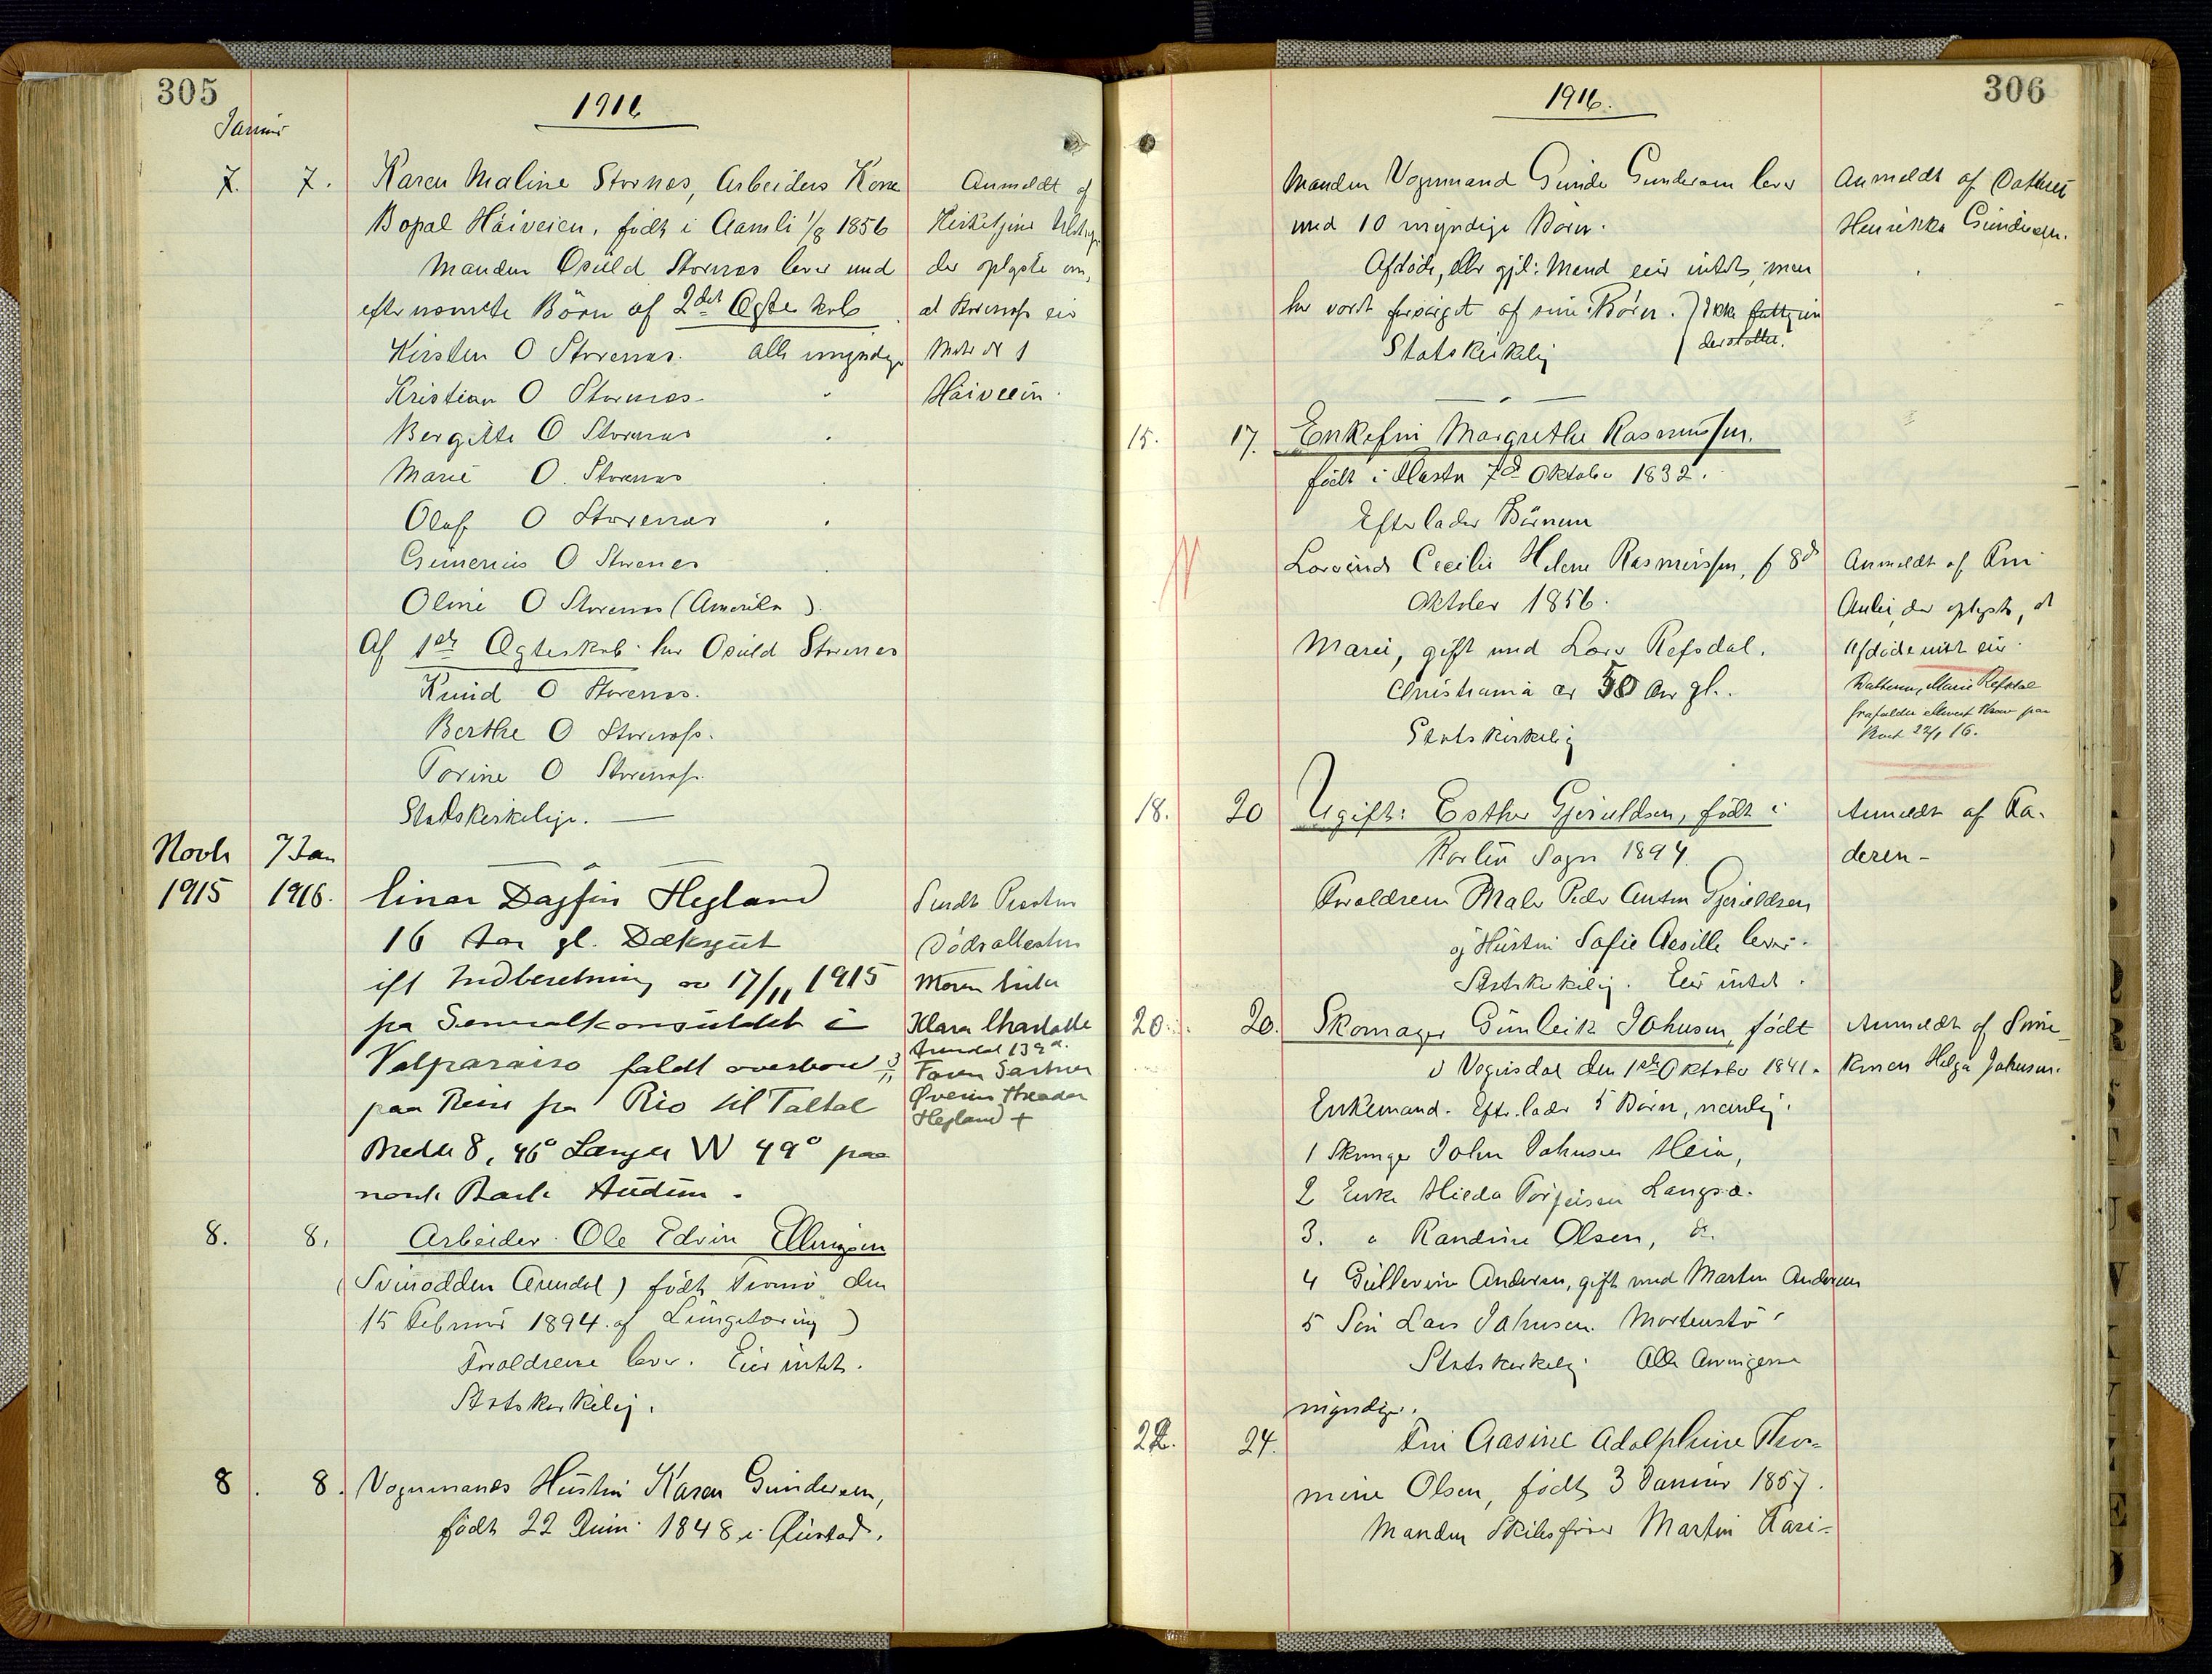 305
1916
Januar
7. 7. Karen Maline Stornes, Arbeiders Kone
Bopal Haiveien, født i Aamli 1/8 1856
Manden Osuld Stornes lever med
efternævnte Børn af 2det Ægteskab
Kirsten O Storenes. alle myndige
Kristian O Stornes
Bergitte O Stornes
Marie O. Storenes
Olaf O Storenes
Gunerius O Storenes
Oline O Storenes (Amerika)
Af 1ste Ægteskab har Osuld Storenes
Knud O Storenes.
Berthe O Storenæs.
Torine O Storenæs.
Statskirkelige.
Anmeldt af
der oplyste om,
at
Haiveien
Novb 7 Jan
1915 1916. Einar Dagfin Hegland
16 Aar gl. Dæksgut
ifl Indberetning av 17/11 1915
fra Generalkonsulatet i
Valparaiso faldt overbord 3/11
paa Reise fra Rio til Taltal
Bredde 8, 46° Længde W 49° paa
norsk Bark Audun.
Sendt Presten
Dødsattesten
Moren Enke
Klara Charlotte
Arendal 139
Faren Gartner
Hegland +
8. 8. Arbeider Ole Edvin Ellingsen
(Svinodden Arendal) født Tromø den
15 Februar 1894. af Lungetæring)
Forældrene lever. Eier intet.
Statskirkelig.
8. 8. Vognmands Hustru Karen Gundersen,
født 22 Juni 1848 i
306
1916.
Manden Vognmand Gunde Gundersen lever
med 10 myndige Børn.
Afdøde, eller gjl: Mand eier intet, men
har vordt forsørget af sine Børn. ) Ikke fattigun
derstøttet.
Statskirkelig
Anmeldt af Datteren
Henrikka Gundersen.
15. 17. Enkefru Margrethe Rasmussen.
født i 7de Oktober 1832.
Efterlader Børnene
Cecilie Helene Rasmussen, f 8de
Oktober 1856.
Marie, gift med Lars Refsdal.
Christiania er 50 Aar gl.
Statskirkelig
Anmeldt af Fru
der oplyste, at
Afdøde intet eier.
Datteren, Marie Refsdal
22/1 16.
18. 20 Ugift: Esther Gjeruldsen, født i
Sogn 1894.
Forældrene Maler Peder Anton Gjeruldsen
og Hustru Sofie Aesille lever.
Statskirkelig. Eier intet.
Anmeldt af Fa-
deren-
20. 20. Skomager Gunleik Johnsen, født
i Vegusdal den 1ste Oktober 1841.
Enkemand. Efterlader 5 Børn, nemlig:
1 John Johnsen Heia,
2 Enke Hilda Torjeisen Langsæ.
3. " Randine Olsen, do.
4 Gullevine Andersen, gift med Martin Andersen
5 Søn Lars Johnsen. Mortenstø
Statskirkelig. Alle Arvingerne
myndige.
Anmeldt af Sønne-
konen Helga Johnsen.
22. 24. Fru Aasine Adolphine Tho-
mine Olsen, født 3 Januar 1857.
Manden Skibsfører Martin Kari-